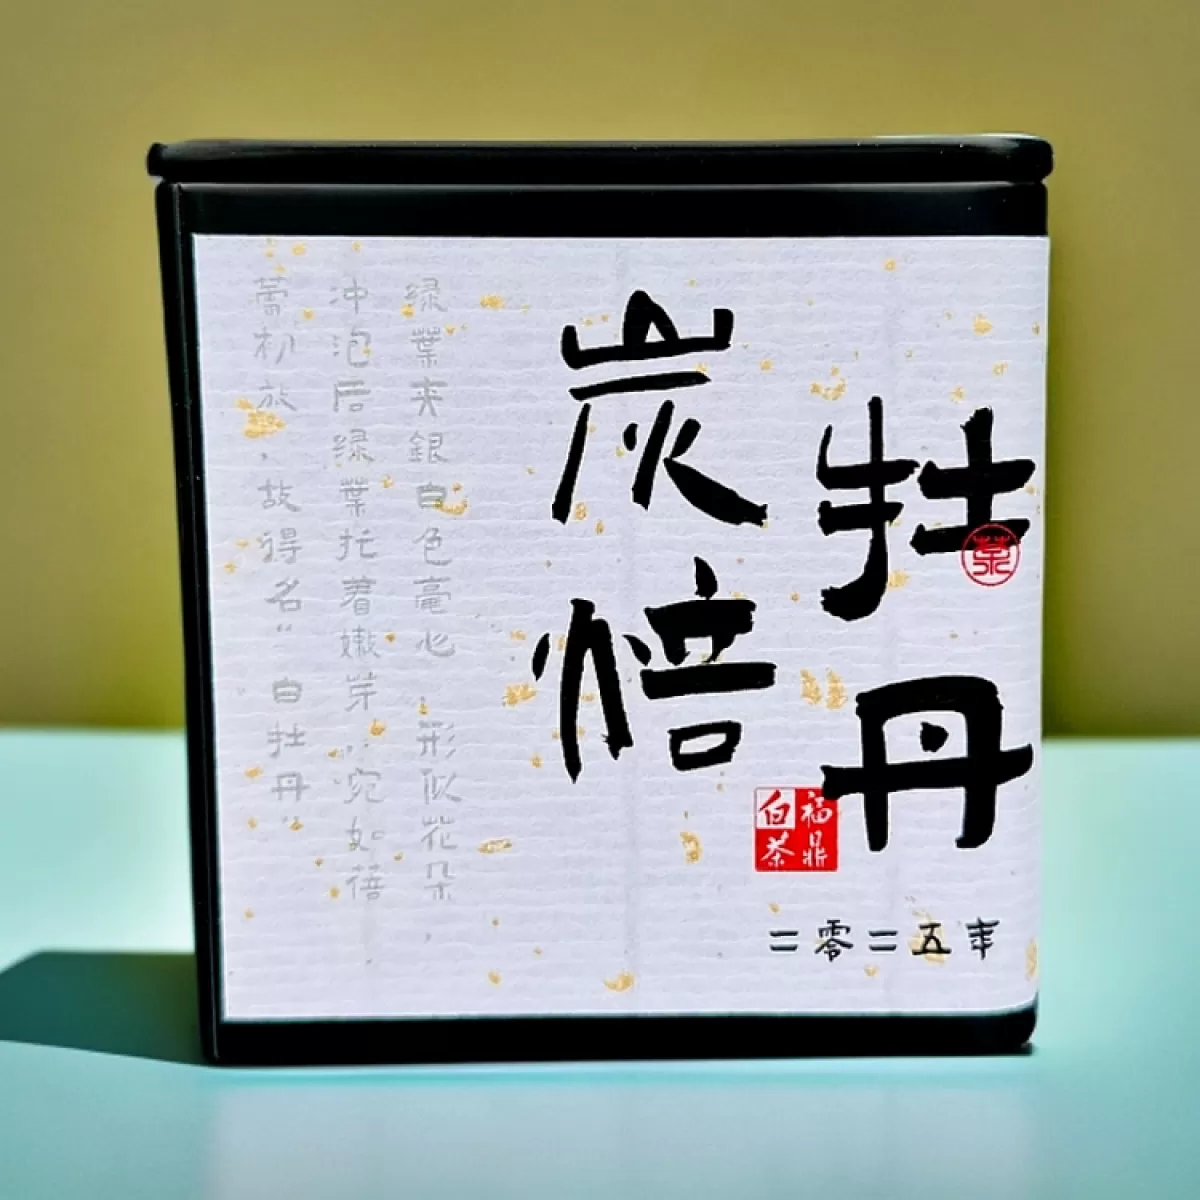 牡丹
茶
炭焙
福鼎
白茶
二零二五年
绿葉夹銀白色毫心,形似花朵,
冲泡后绿葉托着嫩芽,宛如蓓
蕾初放,故得名“白牡丹”